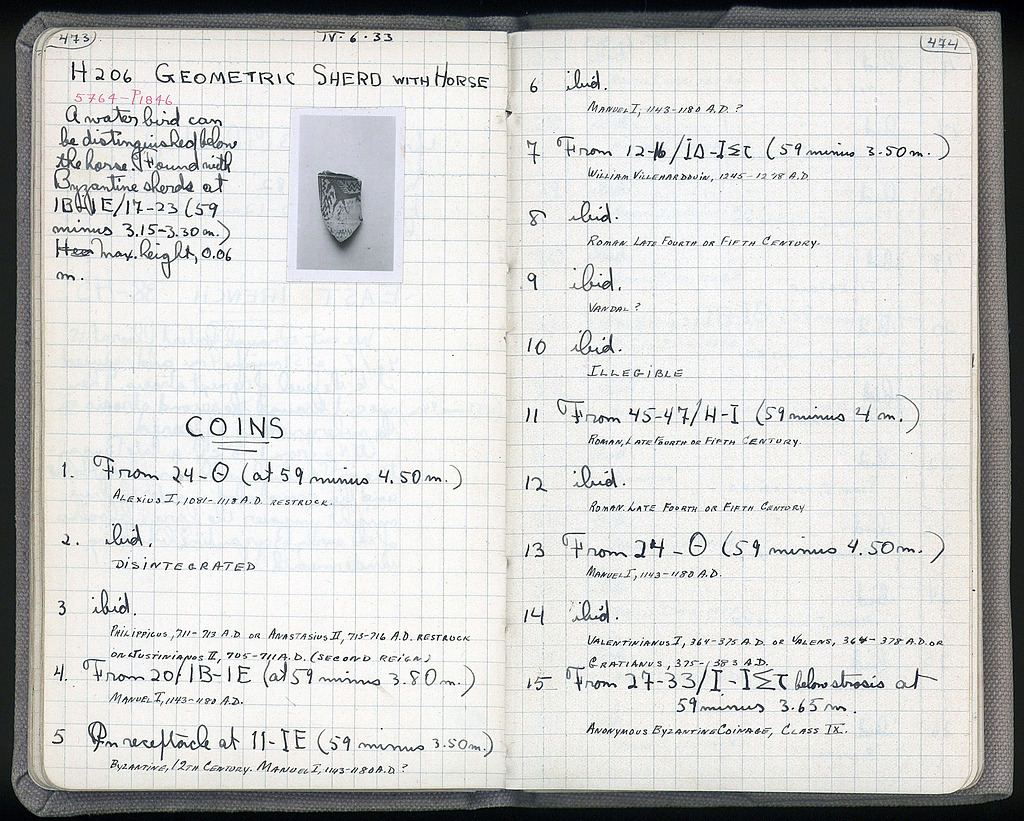 473
IV·6·33
H 206 GEOMETRIC SHERD WITH HORSE
5764-P1846
A water bird can
be distinguished below
the horse. Found with
Byzantine sherds at
IB-IE/17-23 (59
minus 3.15-3.30 m.)
max. height, 0.06
m.
COINS
1. From 24-Θ (at 59 minus 4.50 m.)
ALEXIUS I, 1081-1118 A.D. RESTRUCK.
2. ibid.
DISINTEGRATED
3 ibid.
PHILIPPICUS, 711-713 A.D. OR ANASTASIUS II, 713-716 A.D. RESTRUCK
ON JUSTINIANOS II, 705-711 A.D. (SECOND REIGN)
4. From 20/IB-IE (at 59 minus 3.80 m.)
MANUEL I, 1143-1180 A.D.
5 In receptacle at 11-IE (59 minus 3.50 m.)
BYZANTINE, 12TH CENTURY. MANUEL I, 1143-1180 A.D.?
474
6 ibid.
MANUEL I, 1143-1180 A.D. ?
7 From 12-16/IΔ-IΣΤ (59 minus 3.50 m.)
WILLIAM VILLEHARDOUIN, 1245-1278 A.D.
8 ibid.
ROMAN. LATE FOURTH OR FIFTH CENTURY.
9 ibid.
VANDAL?
10 ibid.
ILLEGIBLE
11 From 45-47/H-I (59 minus 4 m.)
ROMAN, LATE FOURTH OR FIFTH CENTURY.
12 ibid.
ROMAN. LATE FOURTH OR FIFTH CENTURY
13 From 24-Θ (59 minus 4.50 m.)
MANUEL I, 1143-1180 A.D.
14 ibid.
VALENTINIANUS I, 364-375 A.D. OR VALENS, 364-378 A.D. OR
GRATIANUS, 375-383 A.D.
15 From 27-33/I-IΣΤ below strosis at
59 minus 3.65 m.
ANONYMOUS BYZANTINE COINAGE, CLASS IX.